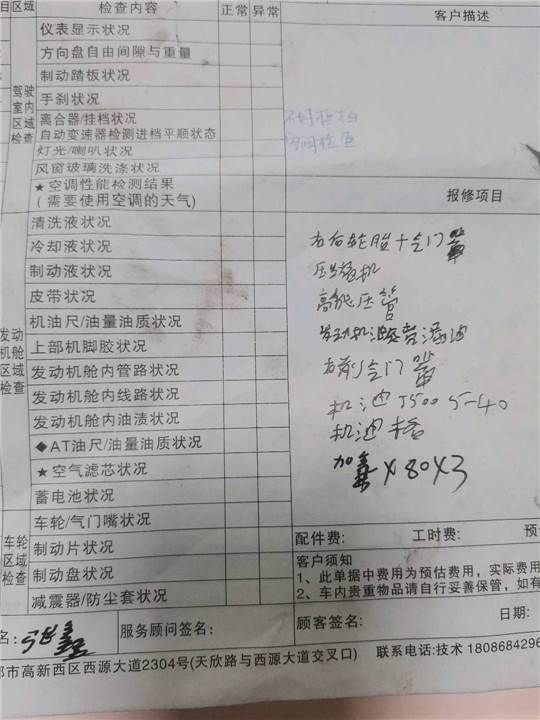 目 区域 检查内容 正常 异常 客户描述
仪表显示状况
方向盘自由间隙与重量
制动踏板状况
驾驶室内区域检查
手刹状况
离合器/挂档状况
自动变速器检测进档平顺状态
不好挂档
灯光/喇叭状况
风窗玻璃洗涤状况
★空调性能检测结果
(需要使用空调的天气)
报修项目
清洗液状况
冷却液状况
制动液状况
皮带状况
机油尺/油量油质状况
发动机舱区域检查
上部机脚胶状况
发动机舱内管路状况
发动机舱内线路状况
发动机舱内油渍状况
◆AT油尺/油量油质状况
★空气滤芯状况
蓄电池状况
右后轮胎+气门
压缩机
高低压管
右前气门
机油 J500 5-40
机油格
X80X3
车轮区域检查
车轮/气门嘴状况
制动片状况
制动盘状况
减震器/防尘套状况
配件费: 工时费: 预
客户须知
1、此单据中费用为预估费用,实际费用
2、车内贵重物品请自行妥善保管,如有
名: 服务顾问签名: 顾客签名: 日期:
都市高新西区西源大道2304号(天欣路与西源大道交叉口) 联系电话:技术 1808684296